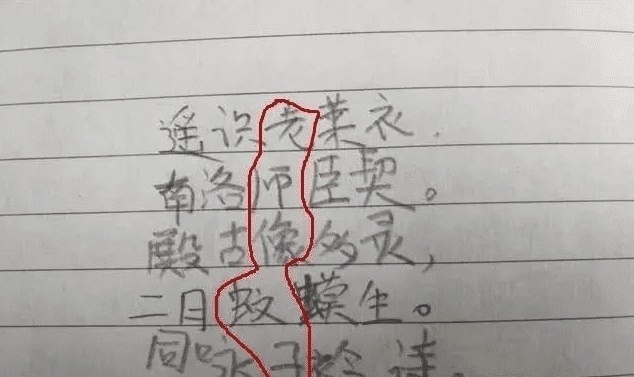 遥识老莱衣.
南洛师臣契。
殿古像多灵,
二月蚊蟆生。
同咏子衿诗.